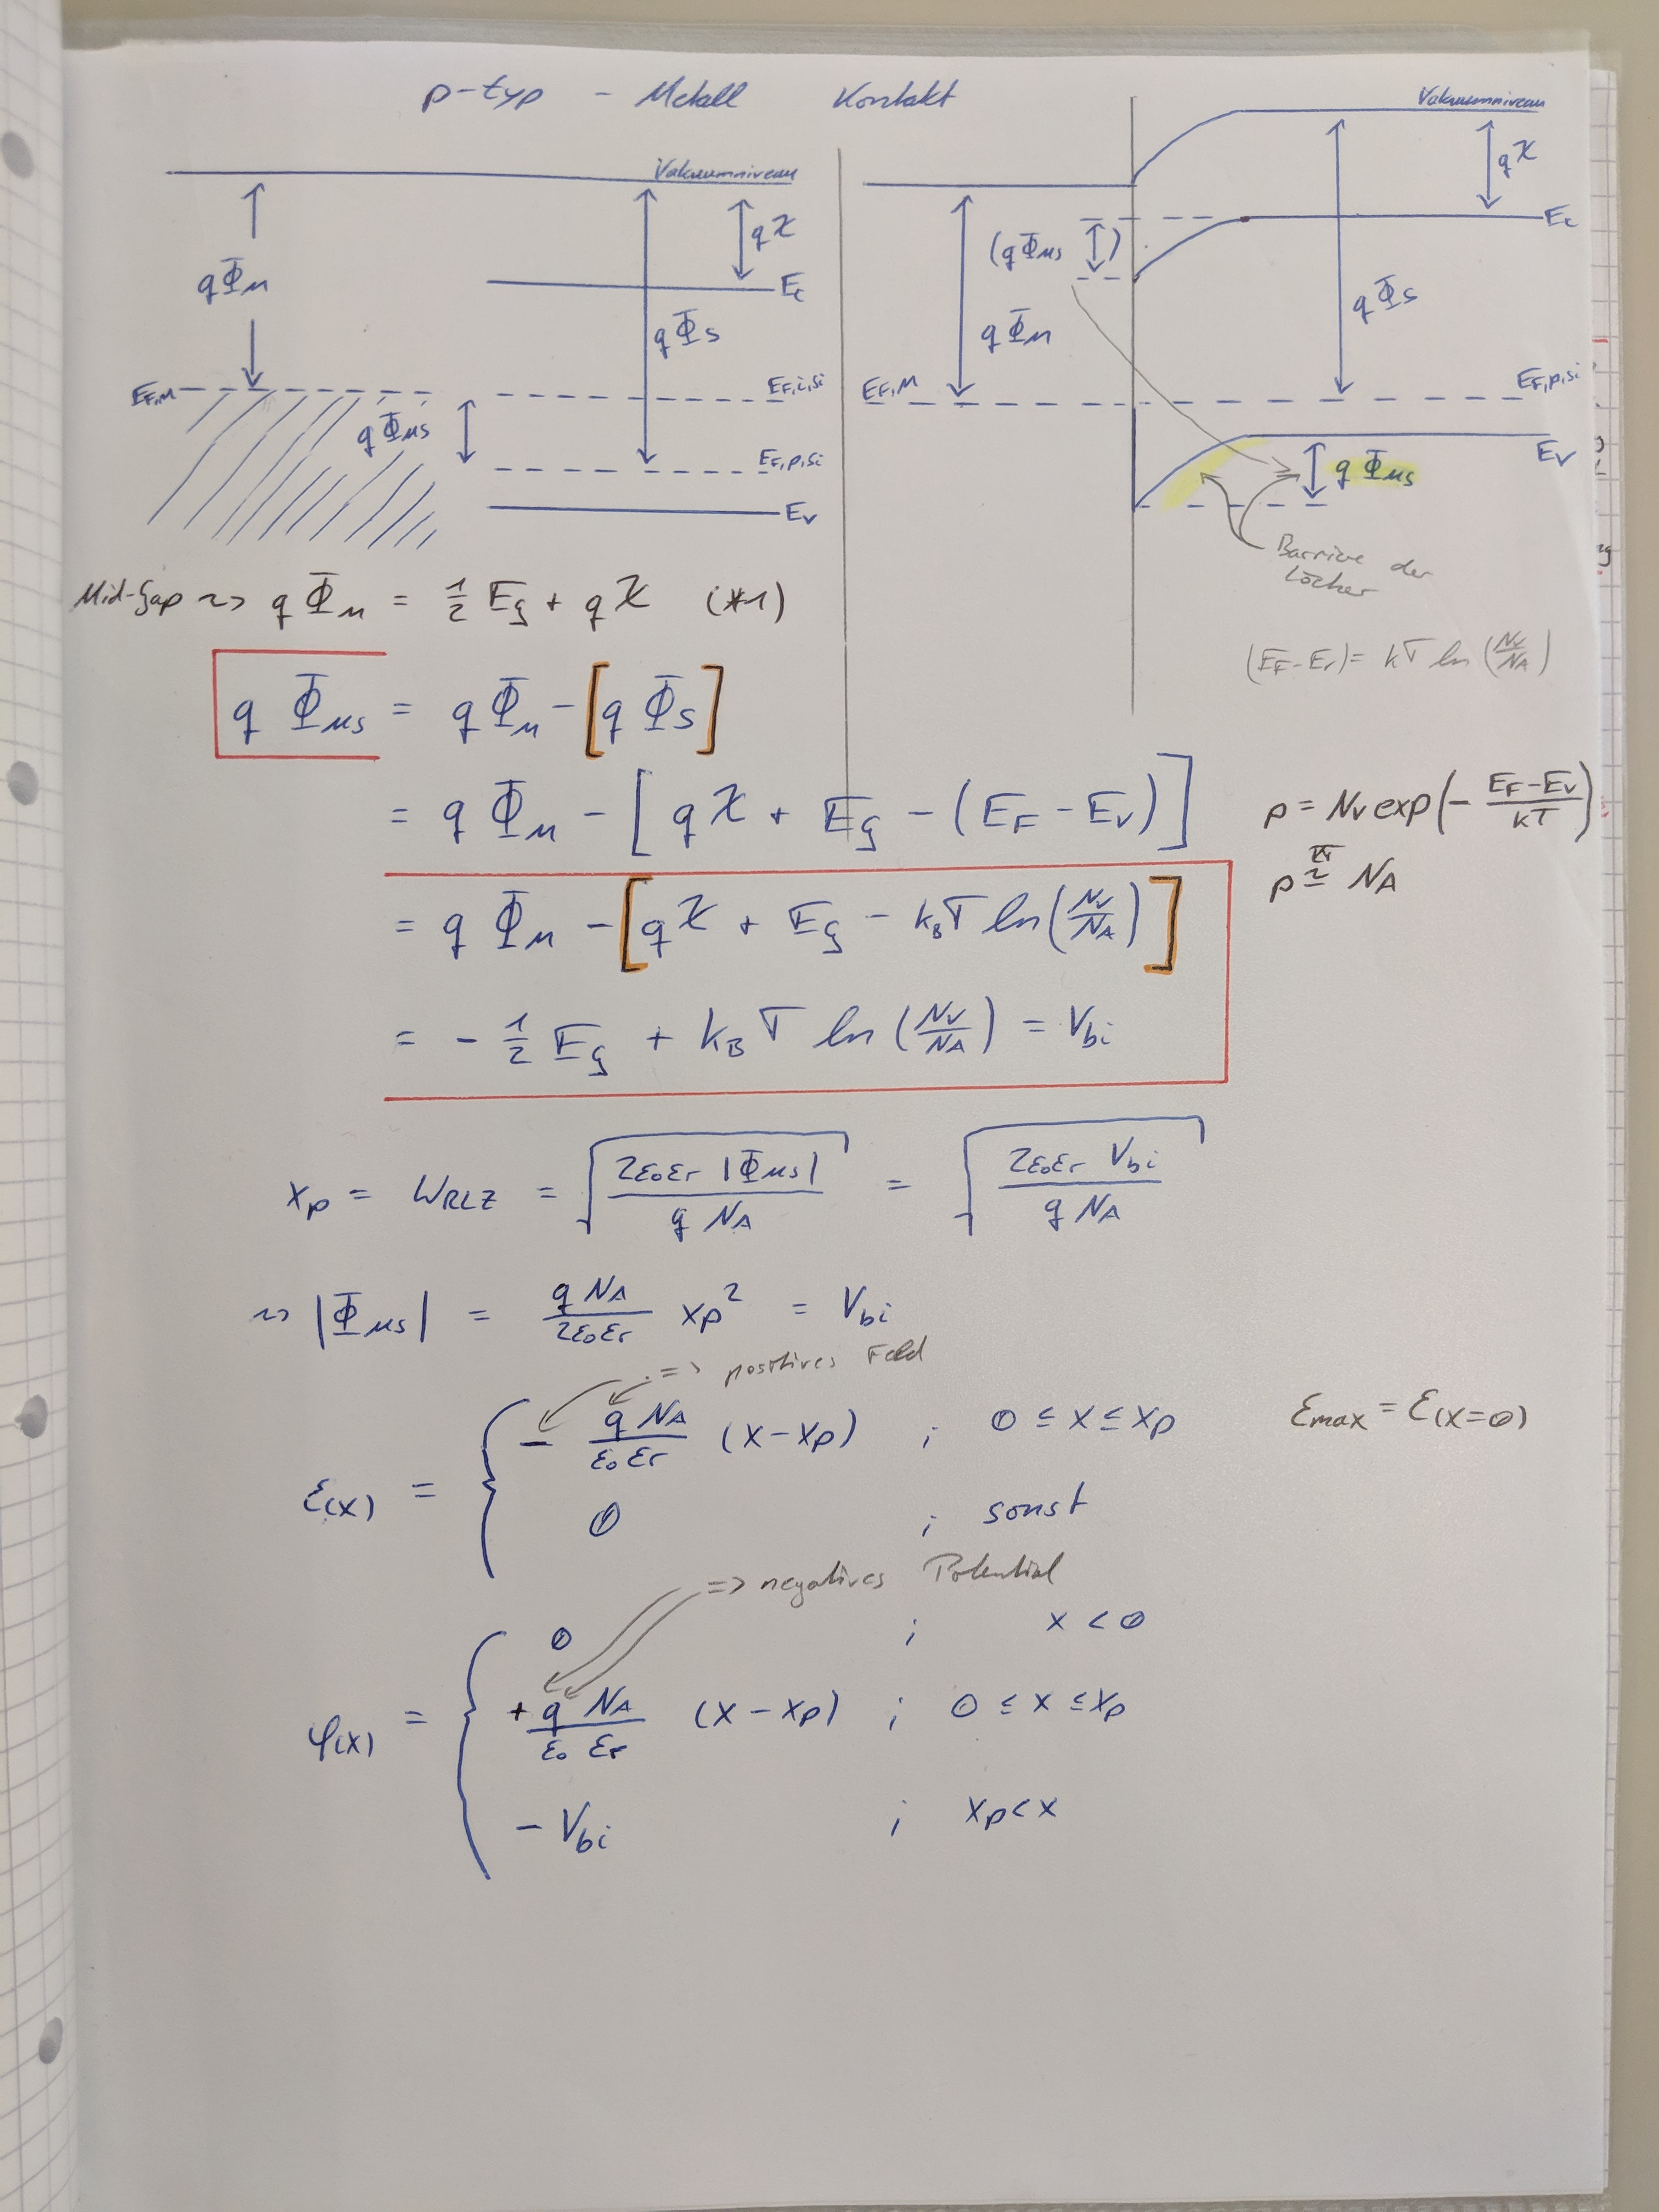 p-typ - Metall Kontakt
Vakuumniveau
qΦ_M
qχ
E_C
qΦ_S
E_F,M
E_F,i,Si
qΦ_MS
E_F,p,Si
E_V
Vakuumniveau
qχ
(qΦ_MS)
E_C
qΦ_M
qΦ_S
E_F,M
E_F,p,Si
E_V
qΦ_MS
Barriere der
Löcher
Mid-Gap ~> qΦ_M = 1/2 E_g + qχ (*1)
(E_F-E_V) = kT ln(N_V/N_A)
qΦ_MS = qΦ_M - [qΦ_S]
= qΦ_M - [qχ + E_g - (E_F - E_V)]
p = N_V exp(- (E_F-E_V)/kT)
p ≅ N_A
= qΦ_M - [qχ + E_g - k_B T ln(N_V/N_A)]
= - 1/2 E_g + k_B T ln(N_V/N_A) = V_bi
x_p = W_RLZ = √(2ε_0ε_r |Φ_MS| / q N_A) = √(2ε_0ε_r V_bi / q N_A)
~> |Φ_MS| = q N_A / 2ε_0ε_r x_p² = V_bi
=> positives Feld
ε(x) = { - q N_A / ε_0 ε_r (x-x_p) ; 0 ≤ x ≤ x_p
ε_max = ε(x=0)
0 ; sonst
=> negatives Potential
0 ; x < 0
φ(x) = { + q N_A / ε_0 ε_r (x - x_p) ; 0 ≤ x ≤ x_p
- V_bi ; x_p < x